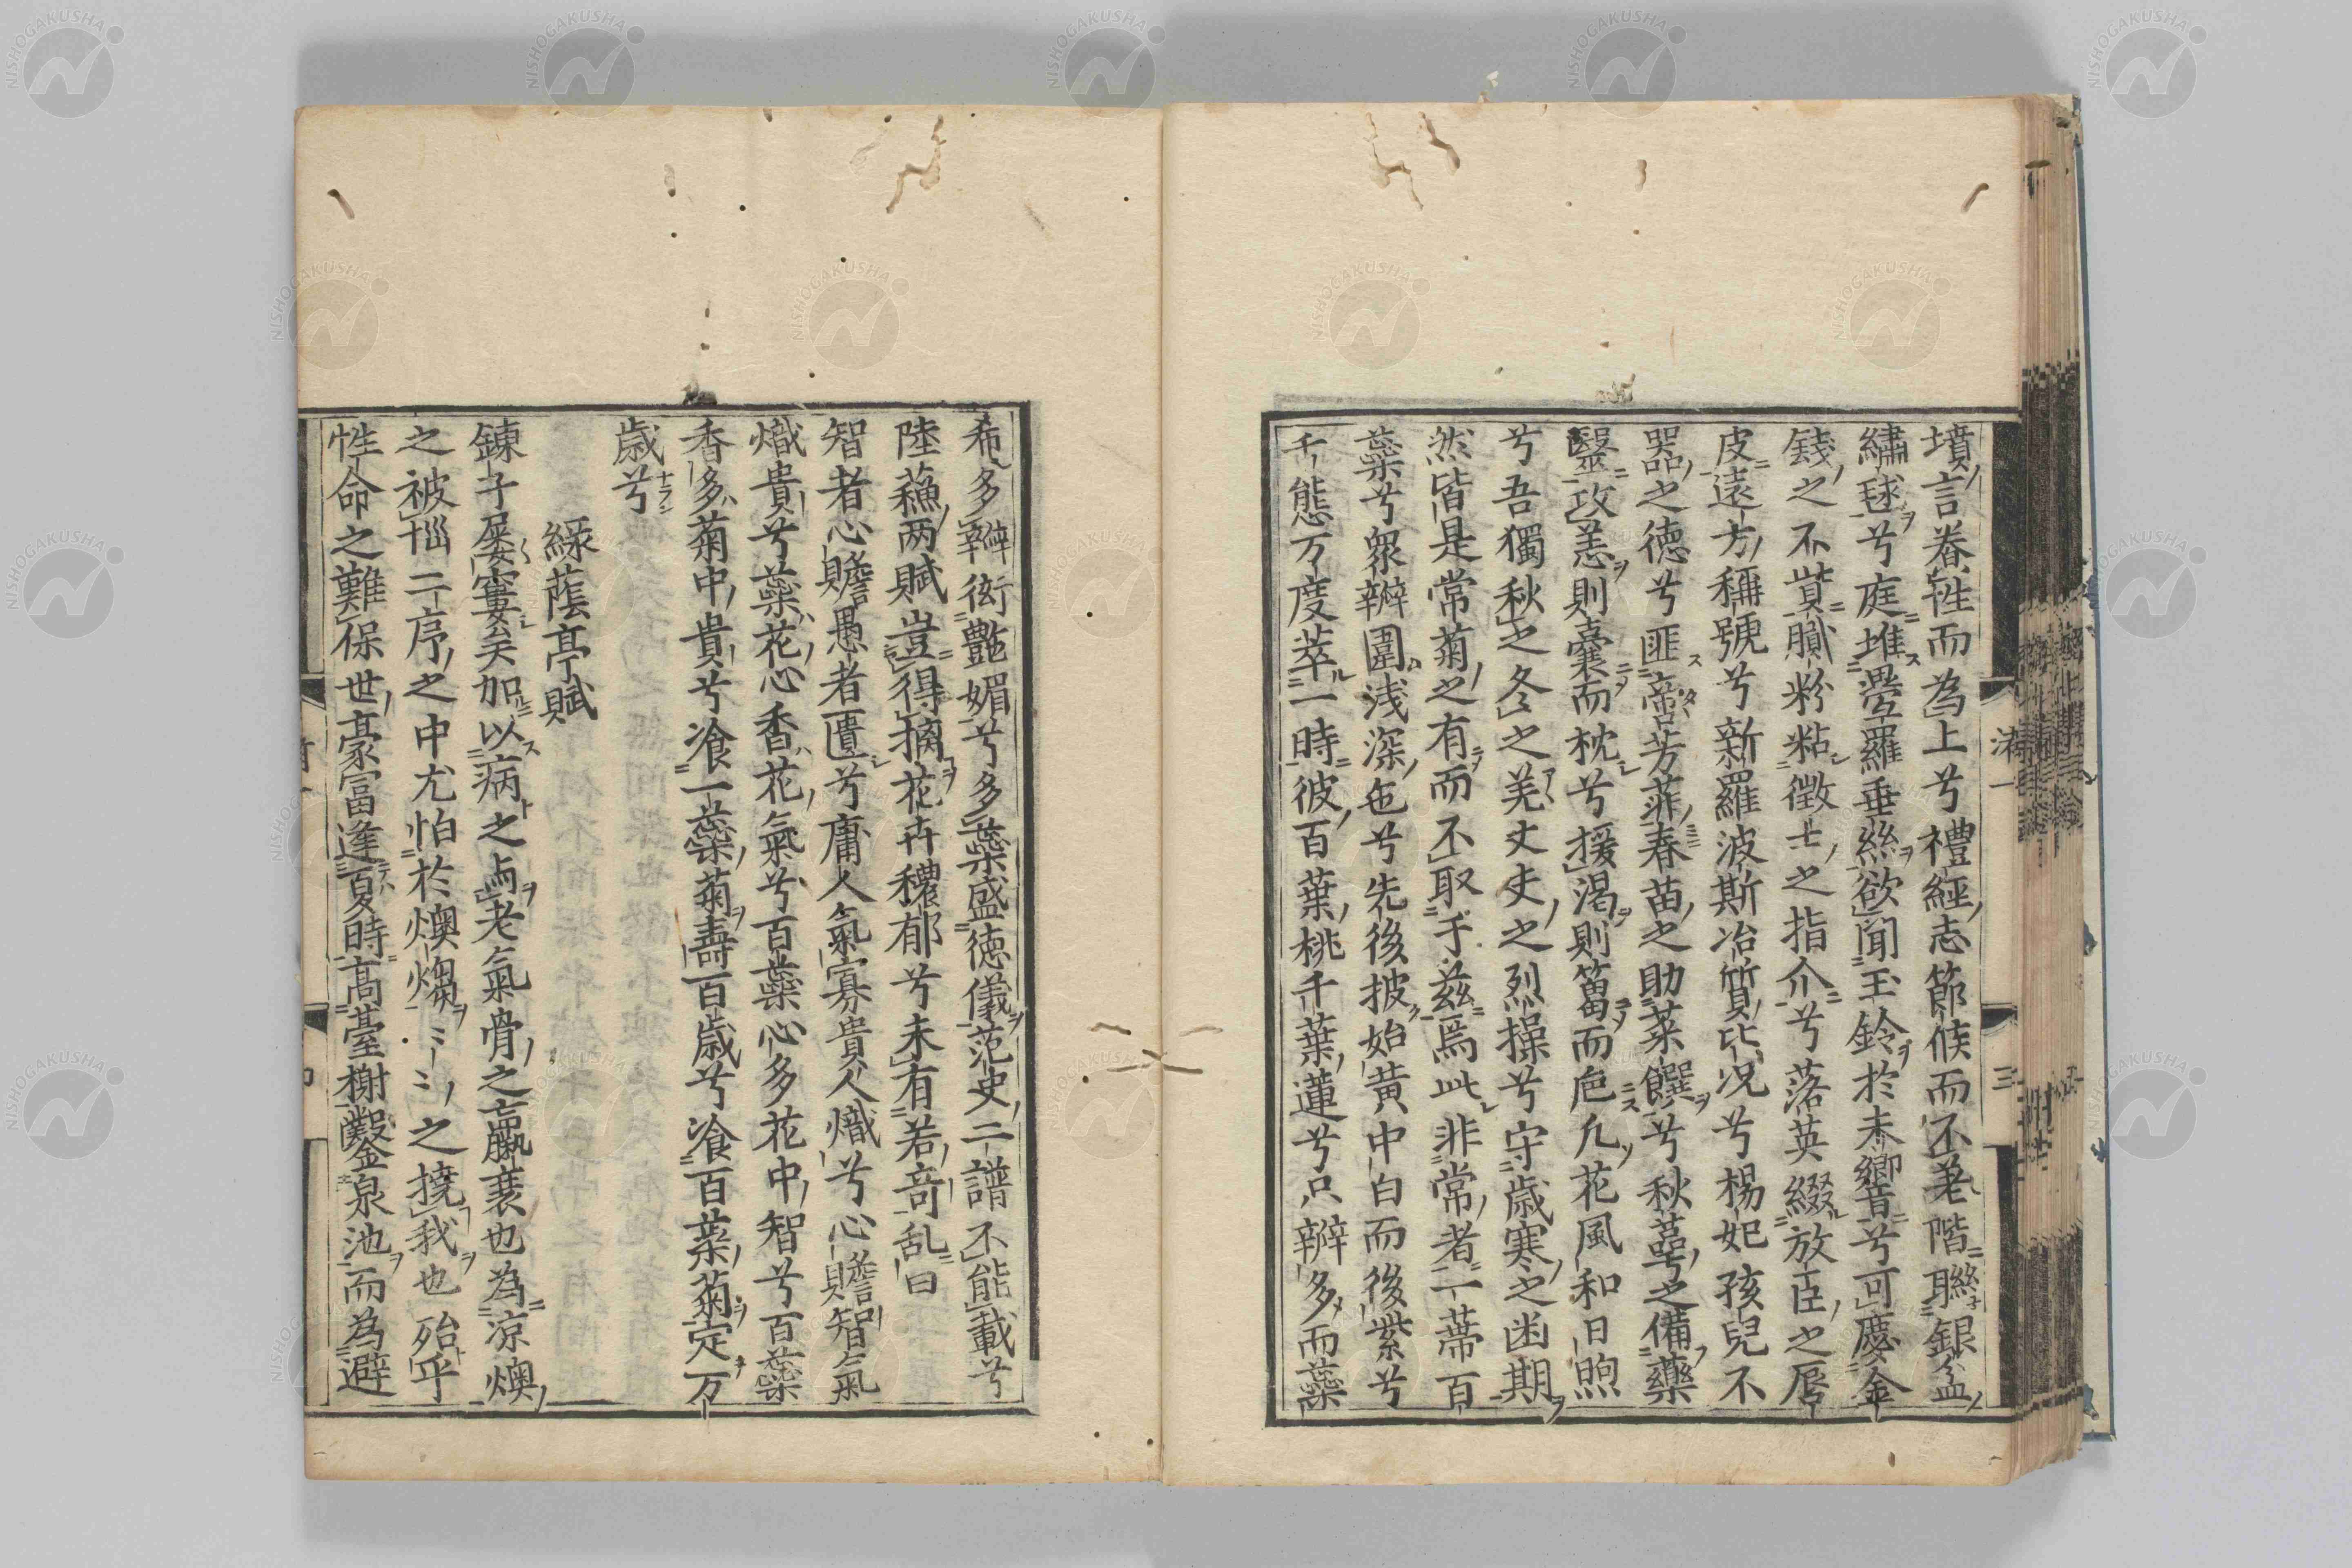 墳言養性而為上兮禮經志節候而不差階聯銀盆
繡毬兮庭堆疊羅垂絲欲聞玉鈴於未響兮可慶金
錢之不蒷膩粉粘徵士之指介兮落英綴放臣之唇
皮遠方稱號兮新羅波斯冶質比况兮楊妃孩兒不
器之德兮匪啻芳菲春苗之助菜饌兮秋蕚之備藥
醫攻恙則囊而枕兮援渴則篘而巵凢花風和日煦
兮吾獨秋之冬之羌丈夫之烈操兮守歲寒之困期
然皆是常菊之有而不取乎茲焉此非常者一蒂百
蘂兮衆辦圍浅深色兮先後披始黃中白而後紫兮
千態万度萃一時彼百葉桃千葉蓮兮只辦多而蘂
希多辦衒艷媚兮多蘂盛德儀范史二譜不能載兮
陸蘓两賦豈得摛花卉穠郁兮未有若竒乱曰
智者心贍愚者匱兮庸人氣寡貴人熾兮心贍智氣
熾貴兮蘂花心香花氣兮百蘂心多花中智兮百蘂
香多菊中貴兮飡一蘂菊壽百歲兮飡百蘂菊定万
歲兮
綠蔭亭賦
鍊子屡窶矣加以病之与老氣骨之羸衰也為凉燠
之被惱二序之中尤怕於燠煬〻〻之撓我也殆乎
性命之難保世豪富逢夏時高臺榭鑿泉池而為避
渚一
三